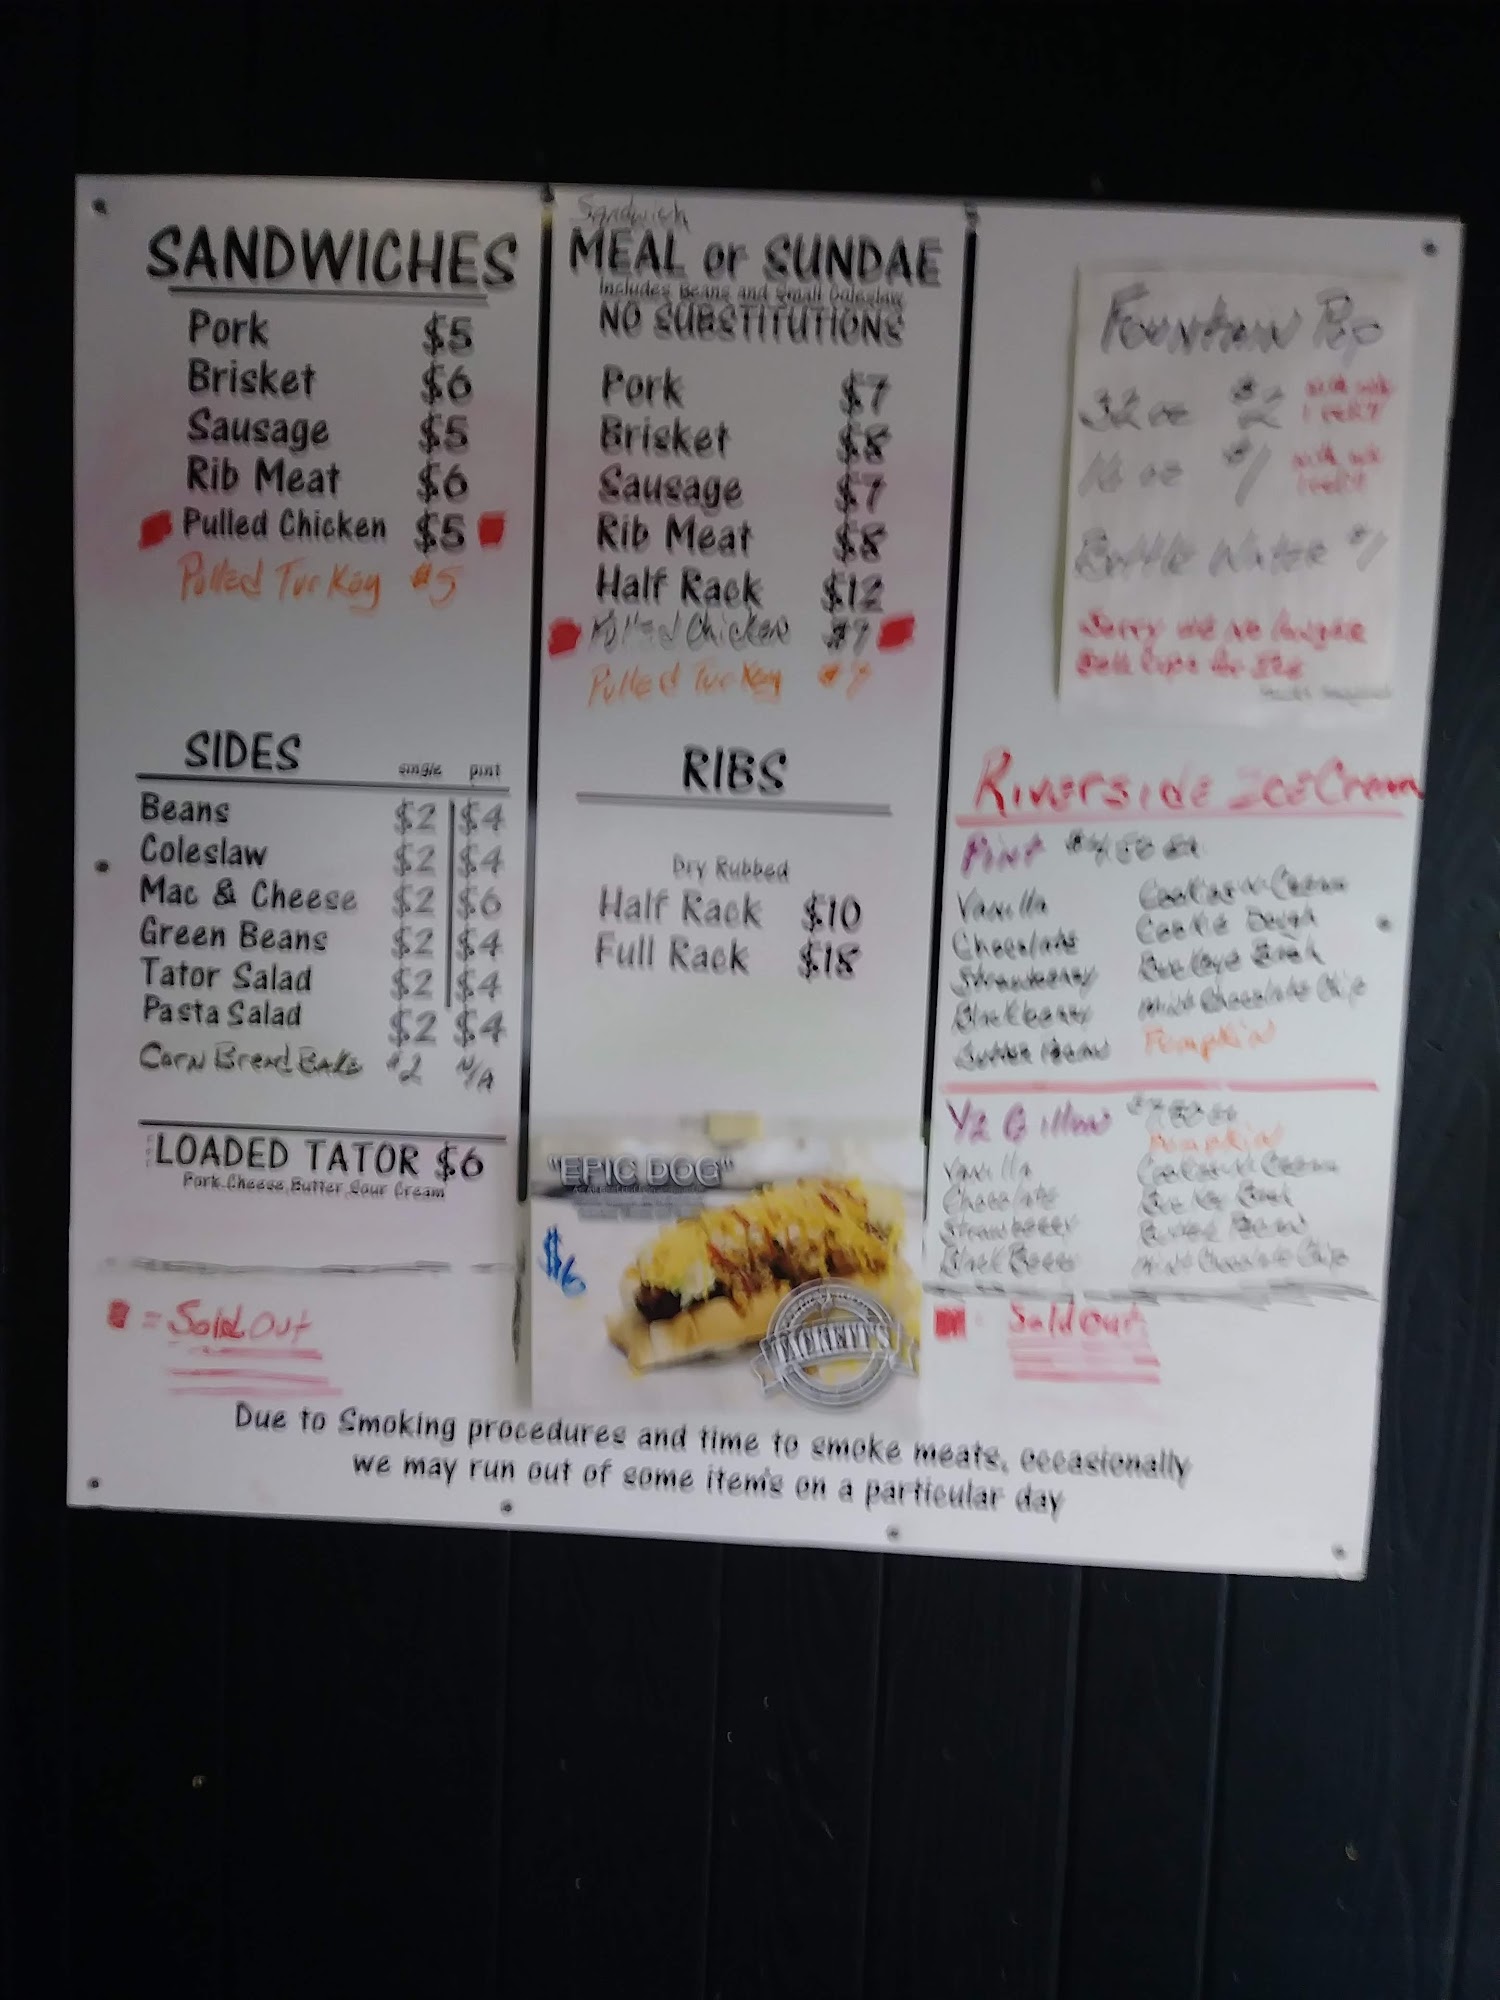 SANDWICHES
Pork $5
Brisket $6
Sausage $5
Rib Meat $6
Pulled Chicken $5
Pulled Turkey $5
SIDES single pint
Beans $2 $4
Coleslaw $2 $4
Mac & Cheese $2 $6
Green Beans $2 $4
Tator Salad $2 $4
Pasta Salad $2 $4
Corn Bread Bake $2 N/A
LOADED TATOR $6
Pork Cheese Butter Sour Cream
= Sold Out
Sandwich
MEAL or SUNDAE
Includes Beans and Small Coleslaw
NO SUBSTITUTIONS
Pork $7
Brisket $8
Sausage $7
Rib Meat $8
Half Rack $12
Pulled Chicken $7
Pulled Turkey $7
RIBS
Dry Rubbed
Half Rack $10
Full Rack $18
"EPIC DOG"
$6
TACKETT'S
Fountain Pop
32 oz $2
16 oz $1
Bottle Water $1
Sorry we no longer
Sell Cups for Ice
Riverside Ice Cream
Pint $4.50 ea
Vanilla Cookies-N-Cream
Chocolate Cookie Dough
Strawberry Buckeye Break
Blackberry Mint Chocolate Chip
Butter Pecan Pumpkin
1/2 Gallon
Pumpkin
Vanilla Cookies N Cream
Chocolate
Strawberry Butter Pecan
Black Berry Mint Chocolate Chip
Sold Out
Due to Smoking procedures and time to smoke meats, occasionally
we may run out of some items on a particular day